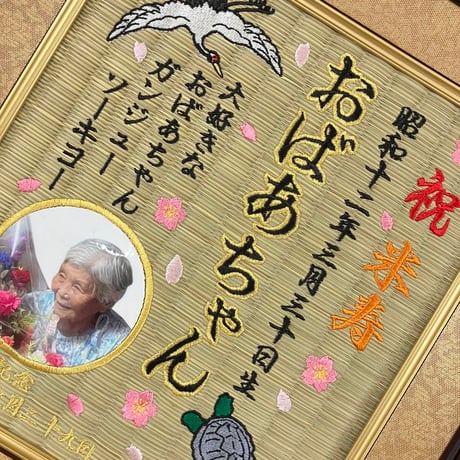 祝
米寿
昭和十二年三月三十日生
おばあちゃん
大好きな
おばあちゃん
ガンジュー
ソーキヨー